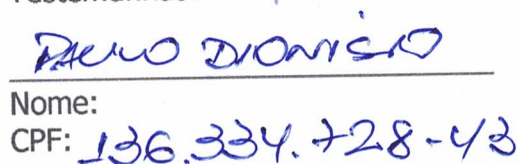 PAULO DIONISIO
Nome:
CPF: 136.334.728-43